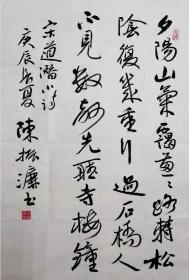 夕陽山氣靄葱〻路轉松
陰復幾重行過石橋人
不見數聲先聽寺樓鐘
宋道潛小詩
庚辰長夏 陳振濂書